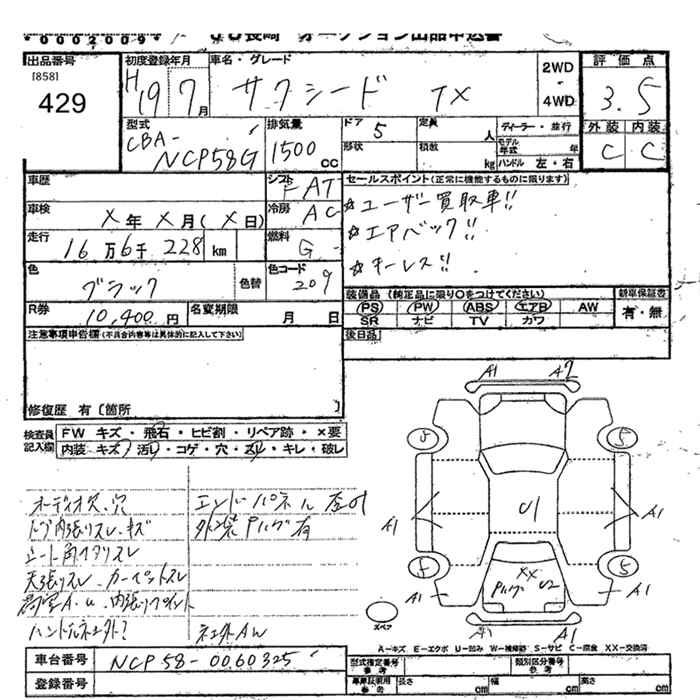 *0002009*
JU長崎 オークション出品申込書
出品番号
[858]
429
初度登録年月
H19 7月
車名・グレード
サクシード TX
2WD
・
4WD
評価点
3.5
外装 内装
C C
型式
CBA-
NCP58G
排気量
1500cc
ドア 5
形状
定員 人
積載 kg
ディーラー・並行
モデル年式 年
ハンドル 左・右
車歴
シフト FAT
冷房 AC
車検 X年X月(X日)
走行 16万6千228km
燃料 G
色 ブラック
色替
色コード 209
R券 10,400円
名変期限 月 日
セールスポイント(正常に機能するものに限ります)
☆ユーザー買取車!!
☆エアバック!!
☆キーレス!!
装備品(純正品に限り○をつけてください)
PS PW ABS エアB AW
SR ナビ TV カワ
新車保証書
有・無
後日品
注意事項申告欄(不具合内容等は具体的に記入して下さい)
修復歴 有〔箇所 〕
検査員記入欄
FW キズ・飛石・ヒビ割・リペア跡・×要
内装 キズ・汚れ・コゲ・穴・スレ・キレ・破レ
オーディオ欠、穴
ドア内張りスレ、キズ
シート
天張りスレ、カーペットスレ
ハンドル社外?
エンドパネル
外装Pハゲ有
社外AW
A1 A2
5 5
A1 U1 A1
5 5
A1 XX A1
Pハゲ U2
A1 A1
スペア
A-キズ E-エクボ U-凹み W-補修跡 S-サビ C-腐食 XX-交換済
車台番号 NCP58-0060325
登録番号
型式指定番号
参考
類別区分番号
参考
車庫証明用
参考
長さ cm 幅 cm 高さ cm